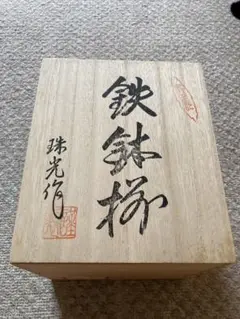 鉄鉢揃
珠光作